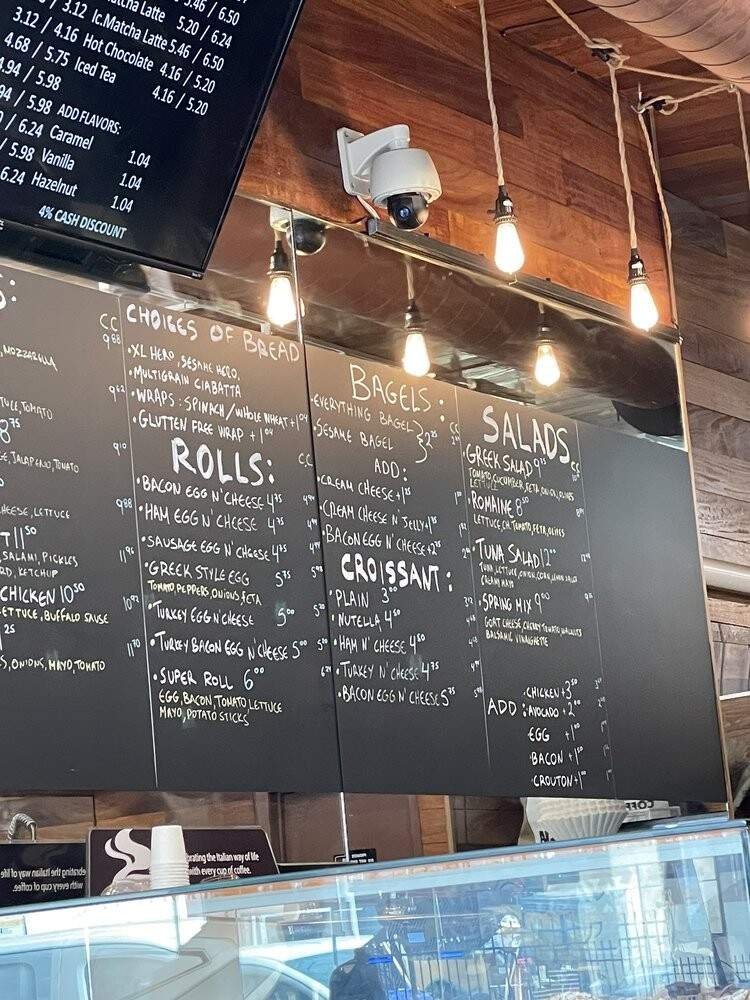 5.46 / 6.50
Matcha Latte 5.20 / 6.24
3.12 Ic.Matcha Latte 5.46 / 6.50
3.12 / 4.16 Hot Chocolate 4.16 / 5.20
4.68 / 5.75 Iced Tea 4.16 / 5.20
4.94 / 5.98
94 / 5.98 ADD FLAVORS:
0 / 6.24 Caramel 1.04
5.98 Vanilla 1.04
6.24 Hazelnut 1.04
4% CASH DISCOUNT
S:
CC
988
, MOZZARELLA
TUCE, TOMATO
8 75
E, JALAPENO, TOMATO
HEESE, LETTUCE
988
T 11 50
SALAMI, PICKLES
RD, KETCHUP
CHICKEN 10 50
ETTUCE, BUFFALO SAUSE
25
S, ONIONS, MAYO, TOMATO
CHOICES OF BREAD
•XL HERO, SESAME HERO,
•MULTIGRAIN CIABATTA
•WRAPS: SPINACH/WHOLE WHEAT +1 04
•GLUTEN FREE WRAP +1 04
ROLLS: CC
•BACON EGG N' CHEESE 4 75
•HAM EGG N' CHEESE 4 75
•SAUSAGE EGG N' CHEESE 4 75
•GREEK STYLE EGG 5 75
TOMATO, PEPPERS, ONIONS, FETA
•TURKEY EGG N' CHEESE 5 00
•TURKEY BACON EGG N' CHEESE 5 00
•SUPER ROLL 6 00
EGG, BACON, TOMATO, LETTUCE
MAYO, POTATO STICKS
BAGELS:
CC
•EVERYTHING BAGEL
•SESAME BAGEL } 2 25
ADD:
•CREAM CHEESE +1 75
•CREAM CHEESE N' JELLY +1 75
•BACON EGG N' CHEESE +2 75
CROISSANT:
•PLAIN 3 00
•NUTELLA 4 50
•HAM N' CHEESE 4 50
•TURKEY N' CHEESE 4 75
•BACON EGG N' CHEESE 5 75
SALADS
CC
•GREEK SALAD 9 75
TOMATO, CUCUMBER, FETA, ONION, OLIVES
LETTUCE
•ROMAINE 8 50
LETTUCE, CH. TOMATO, FETA, OLIVES
•TUNA SALAD 12 00
TUNA, LETTUCE, ONION, CORN,
CREAMY MAYO
•SPRING MIX 9 00
GOAT CHEESE, CHERRY TOMATO WALNUTS
BALSAMIC VINAIGRETTE
ADD:
•CHICKEN +3 50
•AVOCADO +2 00
•EGG +1 00
•BACON +1 50
•CROUTON +1 00
brating the Italian way of life
with every cup of coffee.
ebrating the Italian way of life
with every cup of coffee.